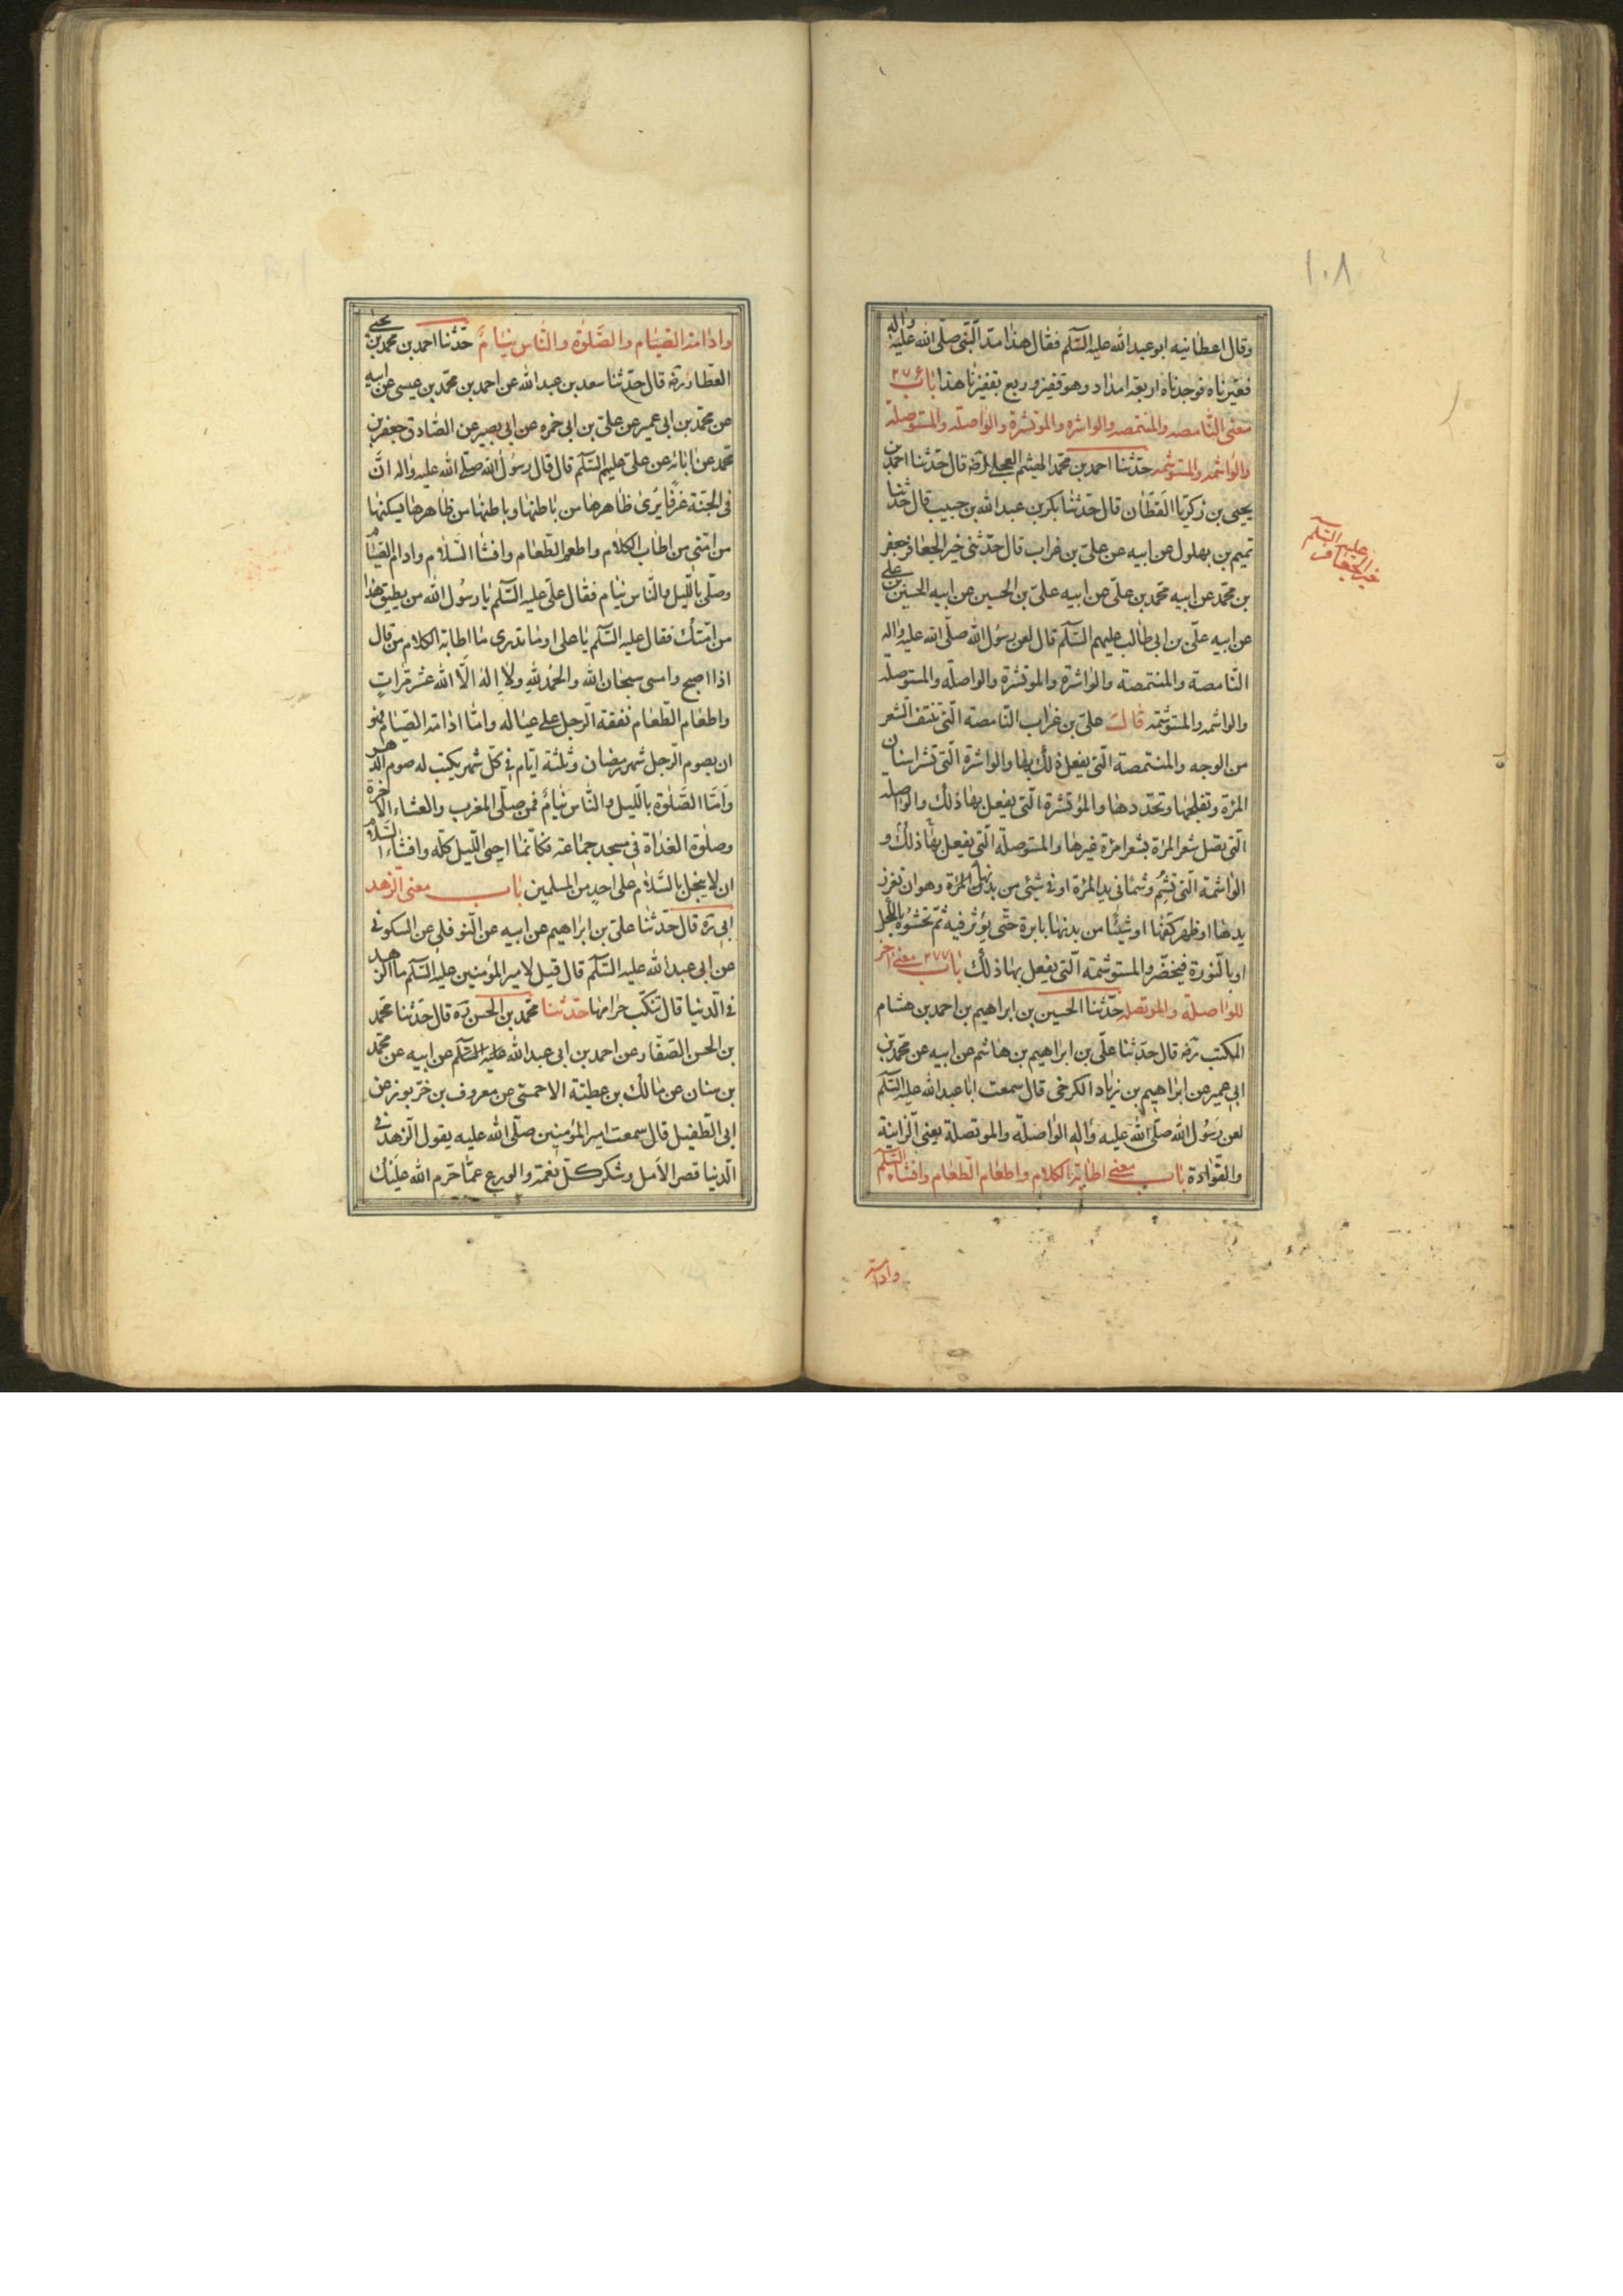 ١٠٨
وقال اعطانيه ابو عبد الله عليه السّلم فقال هذا مدّ النّبىّ صلّى الله عليه واله
فعيّرناه فوجدناه اربعة امداد وهو قفيز وربع بقفيزنا هذا باب ٢٧۶
معنى النّامصه والمنتمصه والواشره والموتشرة والواصله والمستوصله
والواشمه والمستوشمه حدّثنا احمد بن محمّد الهيثم العجلى رضه قال حدّثنا احمد بن
يحيى بن زكريّا القطّان قال حدّثنا بكر بن عبد الله بن حبيب قال حدّثنا
تميم بن بهلول عن ابيه عن علىّ بن غراب قال حدّثنى خير الجعافر جعفر
بن محمّد عن ابيه محمّد بن علىّ عن ابيه علىّ بن الحسين عن ابيه الحسين بن على
عن ابيه علىّ بن ابى طالب عليهم السّلم قال لعن رسُول الله صلّى الله عليه واله
النّامصة والمنتمصة والواشرة والموتشرة والواصلة والمستوصله
والواشمه والمستوشمه قال علىّ بن غراب النّامصة الّتى تنتف الشعر
من الوجه والمنتمصة الّتى يفعل ذلك بها والواشرة الّتى تشر اسنان
المرءة وتفلجها وتحدّدها والمؤتشرة الّتى يفعل بها ذلك والواصله
الّتى تصل شعر المرءة بشعر امرءة غيرها والمستوصلة الّتى يفعل بها ذلك و
الواشمة الّتى تشِمُ وشمًا فى يد المرءة او فى شئ من بدنها وهو ان تغرز
يدها او ظهر كفّها او شيئًا من بدنها بابرة حتّى يؤثر فيه ثمّ تحشوه بالكحل
او بالنّورة فيخضّر والمستوشمة الّتى يفعل بها ذلك باب ٢٧٧ معنى اخر
للواصلة والموتصله حدّثنا الحسين بن ابراهيم بن احمد بن هشام
المكتب رضه قال حدّثنا علىّ بن ابراهيم بن هاشم عن ابيه عن محمّد بن
ابى عمير عن ابراهيم بن زياد الكرخى قال سمعت ابا عبد الله عليه السّلم
لعن رسُول الله صلّى الله عليه واله الواصلة والموتصلة يعنى الزانية
والقوّادة باب معنى اطابة الكلام واطعام الطعام وافشاء السّلم
عليه السّلم
خير الجعافر
وادامة
وادامة الصّيام والصّلوة والنّاس نيام حدّثنا احمد بن محمّد بن يحيى
العطّار رضه قال حدّثنا سعد بن عبد الله عن احمد بن محمّد بن عيسى عن ابيه
عن محمّد بن ابى عمير عن علىّ بن ابى حمزه عن ابى بصير عن الصّادق جعفر بن
محمّد عن ابائه عن علىّ عليهم السّلم قال قال رسُول الله صلّى الله عليه واله انّ
فى الجنّة غرفًا يُرى ظاهرها من باطنها وباطنها من ظاهرها يسكنها
من امّتى من اطاب الكلام واطعم الطّعام وافشا السّلام وادام الصّيام
وصلّى بالّليل والنّاس نيام فقال علىّ عليه السّلم يا رسُول الله من يطيق هذا
من امّتك فقال عليه السّلم يا على او ما تدرى ما اطابة الكلام من قال
اذا اصبح وامسى سبحان الله والحمد للهِ ولا اله الّا الله عشر مرّاتٍ
واطعام الطّعام نفقة الرّجل على عياله وامّا ادامة الصّيام فهو
ان يصوم الرّجل شهر رمضان وثلثة ايّام فى كلّ شهر يكتب له صوم الدّهر
وامّا الصّلوة بالّليل والنّاس نيامٌ فمن صلّى المغرب والعشاء الاخرة
وصلوة الغداة فى مسجد جماعة فكانّما احيى الّليل كلّه وافشاء السّلام
ان لا يبخل بالسّلام على احدٍ من المسلمين باب معنى الزّهد
ابى ره قال حدّثنا علىّ بن ابراهيم عن ابيه عن النّوفلى عن السكونى
عن ابى عبد الله عليه السّلم قال قيل لامير المؤمنين عليه السّلم ما الزّهد
فى الدّنيا قال تنكّب حرامها حدّثنا محمّد بن الحسن ره قال حدّثنا محمّد
بن الحسن الصّفّار عن احمد بن ابى عبد الله عليه السّلم عن ابيه عن محمّد
بن سنان عن مالك بن عطيّة الاحمسّى عن معروف بن خرّبوز عن
ابى الطّفيل قال سمعت امير المؤمنين صلّى الله عليه يقول الزّهد فى
الّدنيا قصر الأمل وشكر كلّ نعمة والورع عمّا حرّم الله عليك